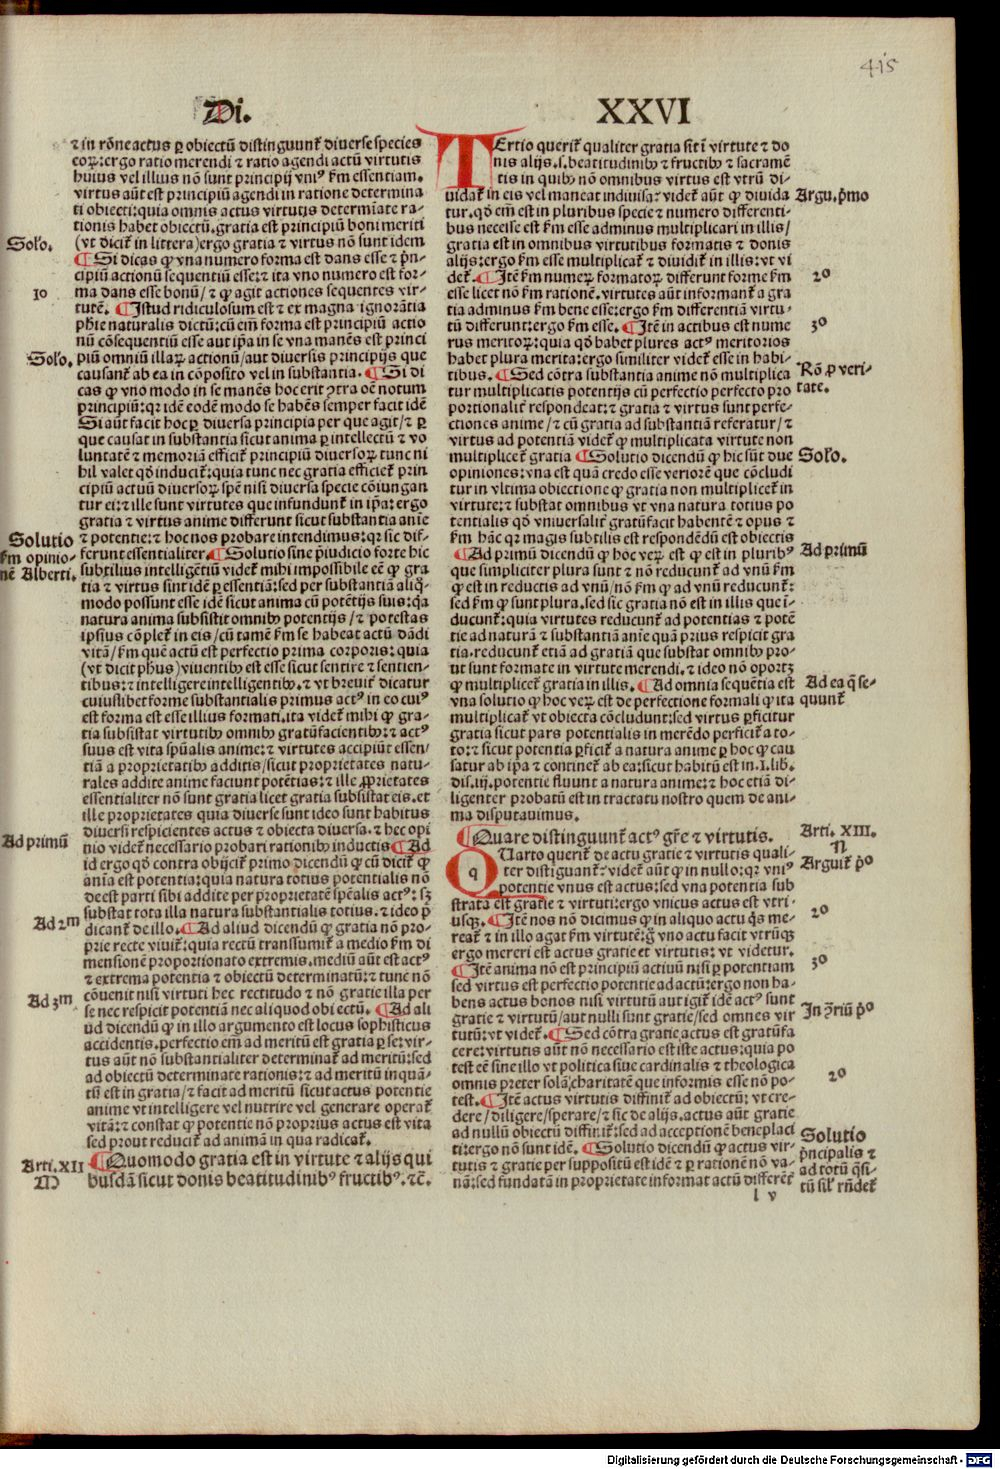 415
Di.
XXVI
⁊ in rōne actus ꝑ obiectū distinguunt᷑ diuerse species
eoꝝ: ergo ratio merendi ⁊ ratio agendi actū virtutis
huius vel illius nō sunt principij vniꝰ ẜm essentiam.
virtus aūt est principiū agendi in ratione determina
ti obiecti: quia omnis actus virtutis determīate ra-
tionis habet obiectū. gratia est principiū boni meriti
(vt dicit᷑ in littera) ergo gratia ⁊ virtus nō sunt idem
Solo.
¶ Si dicas ꝙ vna numero forma est dans esse ⁊ p̄n-
cipiū actionū sequentiū esse: ⁊ ita vno numero est for-
10
ma dans esse bonū/ ⁊ ꝙ agit actiones sequentes vir-
tutē. ¶ Istud ridiculosum est ⁊ ex magna ignorātia
phīe naturalis dictū: cū em̄ forma est principiū actio
nū cōsequentiū esse aut ip̄a in se vna manēs est princi
Solo.
piū omniū illaꝝ actionū/ aut diuersis principijs que
causant᷑ ab ea in cōposito vel in substantia. ¶ Si di
cas ꝙ vno modo in se manēs hoc erit ɔtra oēm notum
principiū: qꝛ idē eodē modo se habēs semper facit idē
Si aūt facit hoc ꝑ diuersa principia per que agit/ ⁊ ꝑ
que causat in substantia sicut anima ꝑ intellectū ⁊ vo
luntatē ⁊ memoriā efficit᷑ principiū diuersoꝝ tunc ni
hil valet qd̄ inducit᷑: quia tunc nec gratia efficiet᷑ prin
cipiū actuū diuersoꝝ spē nisi diuersa specie cōiungan
tur ei: ⁊ ille sunt virtutes que infundunt᷑ in ip̄a: ergo
gratia ⁊ virtus anime differunt sicut substantia aīe
Solutio
ẜm opinio-
nē Alberti.
⁊ potentie: ⁊ hoc nos probare intendimus: qꝛ sic dif-
ferunt essentialiter. ¶ Solutio sine p̄iudicio forte hic
subtilius intelligētiū videt᷑ mihi impossibile eē ꝙ gra
tia ⁊ virtus sint idē ꝑ essentiā: sed per substantiā aliq̄
modo possunt esse idē sicut anima cū potētijs suis: q̄a
natura anima subsistit omnibꝫ potentijs/ ⁊ potestas
ipsius cōplet᷑ in eis/ cū tamē ẜm se habeat actū dādi
vitā/ ẜm quē actū est perfectio prima corporis: quia
(vt dicit phūs) viuentibꝫ est esse sicut sentire ⁊ sentien-
tibus: ⁊ intelligere intelligentibꝫ. ⁊ vt breuit᷑ dicatur
cuiuslibet forme substantialis primus actꝰ in eo cuiꝰ
est forma est esse illius formati. ita videt᷑ mihi ꝙ gra-
tia subsistat virtutibꝫ omnibꝫ gratū facientibꝫ: ⁊ actꝰ
suus est vita spūalis anime: ⁊ virtutes accipiūt essen/
tiā a proprietatibꝫ additis/ sicut proprietates natu-
rales addite anime faciunt potētias: ⁊ ille ꝓprietates
essentialiter nō sunt gratia licet gratia subsistat eis. et
ille proprietates quia diuerse sunt ideo sunt habitus
diuersi respicientes actus ⁊ obiecta diuersa. ⁊ hec opi
Ad primū
nio videt᷑ necessario probari rationibꝫ inductis ¶ Ad
id ergo qd̄ contra obijcit᷑ primo dicendū ꝙ cū dicit᷑ ꝙ
aīa est potentia: quia natura totius potentialis nō
deest parti sibi addite per proprietatē sp̄ealis actꝰ: sꝫ
substat tota illa natura substantialis totius. ⁊ ideo p̄
Ad 2m
dicant᷑ de illo. ¶ Ad aliud dicendū ꝙ gratia nō pro-
prie recte viuit᷑: quia rectū transsumit᷑ a medio ẜm di
mensionē proportionato extremis. mediū aūt est actꝰ
⁊ extrema potentia ⁊ obiectū determinatū: ⁊ tunc nō
Ad 3m
cōuenit nisi virtuti hec rectitudo ⁊ nō gratie illa per
se nec respicit potentiā nec aliquod obiectū. ¶ Ad ali
ud dicendū ꝙ in illo argumento est locus sophisticus
accidentis. perfectio em̄ ad meritū est gratia ꝑ se: vir-
tus aūt nō substantialiter determinat᷑ ad meritū: sed
ad obiectū determinate rationis: ⁊ ad meritū inquā-
tū est in gratia/ ⁊ facit ad meritū sicut actus potentie
anime vt intelligere vel nutrire vel generare operat᷑
vitā: ⁊ constat ꝙ potentie nō proprius actus est vita
sed prout reducit᷑ ad animā in qua radicat᷑.
Arti. XII
M
¶ Quomodo gratia est in virtute ⁊ alijs qui
busdā sicut donis beatitudinibꝰ fructibꝰ. ⁊c̄.
TErtio querit᷑ qualiter gratia sit ī virtute ⁊ do
nis alijs. s. beatitudinibꝫ ⁊ fructibꝫ ⁊ sacramē
tis in quibꝫ nō omnibus virtus est vtrū di-
Argu. p̄mo
uidat᷑ in eis vel maneat indiuisa: videt᷑ aūt ꝙ diuida
tur. qd̄ em̄ est in pluribus specie ⁊ numero differenti-
bus necesse est ẜm esse adminus multiplicari in illis/
gratia est in omnibus virtutibus formatis ⁊ donis
alijs: ergo ẜm esse multiplicat᷑ ⁊ diuidit᷑ in illis: vt vi
2o
det᷑. ¶ Itē ẜm numeꝝ formatoꝝ differunt forme ẜm
esse licet nō ẜm rationē. virtutes aūt informant᷑ a gra
tia adminus ẜm bene esse: ergo ẜm differentiā virtu-
3o
tū differunt: ergo ẜm esse. ¶ Itē in actibus est nume
rus meritoꝝ: quia qd̄ habet plures actꝰ meritorios
habet plura merita: ergo similiter videt᷑ esse in habi-
Rō ꝓ veri-
tate.
tibus. ¶ Sed cōtra substantia anime nō multiplica
tur multiplicatis potentijs cū perfectio perfecto pro
portionalit᷑ respondeat: ⁊ gratia ⁊ virtus sunt perfe-
ctiones anime/ ⁊ cū gratia ad substantiā referatur/ ⁊
virtus ad potentiā videt᷑ ꝙ multiplicata virtute non
Solo.
multiplicet᷑ gratia ¶ Solutio dicendū ꝙ hic sūt due
opiniones: vna est quā credo esse veriorē que cōcludi
tur in vltima obiectione ꝙ gratia non multiplicet᷑ in
virtute: ⁊ substat omnibus vt vna natura totius po
tentialis qd̄ vniuersalit᷑ gratū facit habentē ⁊ opus ⁊
ẜm hāc qꝛ magis subtilis est respondēdū est obiectis
Ad primū
¶ Ad primū dicendū ꝙ hoc veꝝ est ꝙ est in pluribꝰ
que simpliciter plura sunt ⁊ nō reducunt᷑ ad vnū ẜm
ꝙ est in reductis ad vnū/ nō ẜm ꝙ ad vnū reducunt᷑:
sed ẜm ꝙ sunt plura. sed sic gratia nō est in illis que ī-
ducunt᷑: quia virtutes reducunt᷑ ad potentias ⁊ potē
tie ad naturā ⁊ substantiā aīe quā prius respicit gra
tia. reducunt᷑ etiā ad gratiā que substat omnibꝫ pro-
ut sunt formate in virtute merendi. ⁊ ideo nō oportꝫ
Ad ea q̄ se-
quunt᷑
ꝙ multiplicet᷑ gratia in illis. ¶ Ad omnia sequētia est
vna solutio ꝙ hoc veꝝ est de perfectione formali ꝙ ita
multiplicat᷑ vt obiecta cōcludunt: sed virtus ꝑficitur
gratia sicut pars potentialis in merēdo perficit᷑ a to-
to: ⁊ sicut potentia ꝑficit᷑ a natura anime ꝑ hoc ꝙ cau
satur ab ip̄a ⁊ continet᷑ ab ea: sicut habitū est in .I. lib.
dis. iij. potentie fluunt a natura anime: ⁊ hoc etiā di-
ligenter probatū est in tractatu nostro quem de ani-
ma disputauimus.
Arti. XIII.
N
¶ Quare distinguunt᷑ actꝰ gr̄e ⁊ virtutis.
Arguit᷑ p̄o
QUarto querit᷑ de actu gratie ⁊ virtutis quali-
ter distiguant᷑: videt᷑ aūt ꝙ in nullo: qꝛ vniꝰ
q
potentie vnus est actus: sed vna potentia sub
strata est gratie ⁊ virtuti: ergo vnicus actus est vtri-
2o
usqꝫ. ¶ Itē nos nō dicimus ꝙ in aliquo actu q̄s me-
reat᷑ ⁊ in illo agat ẜm virtutē: g̊ vno actu facit vtrūqꝫ
ergo mereri est actus gratie et virtutis: vt videtur.
3o
¶ Itē anima nō est principiū actiuū nisi ꝑ potentiam
sed virtus est perfectio potentie ad actū: ergo non ha-
bens actus bonos nisi virtutū aut igit᷑ idē actꝰ sunt
In ɔ̄riū p̄o
gratie ⁊ virtutū/ aut nulli sunt gratie/ sed omnes vir
tutū: vt videt᷑. ¶ Sed cōtra gratie actus est gratū fa
cere: virtutis aūt nō necessario est iste actus: quia po
test eē sine illo vt politica siue cardinalis ⁊ theologica
2o
omnis preter solā charitatē que informis esse nō po-
test. ¶ Itē actus virtutis diffinit᷑ ad obiectū: vt cre-
dere/ diligere/ sperare/ ⁊ sic de alijs. actus aūt gratie
ad nullū obiectū diffinit᷑: sed ad acceptionē beneplaci
Solutio
p̄ncipalis ⁊
ad totū q̄si-
tū sil᷑ rn̄det᷑
ti: ergo nō sunt idē. ¶ Solutio dicendū ꝙ actus vir-
tutis ⁊ gratie per suppositū est idē ⁊ ꝑ rationē nō va-
nā: sed fundatā in proprietate informat actū differēt᷑
l v
Digitalisierung gefördert durch die Deutsche Forschungsgemeinschaft - DFG